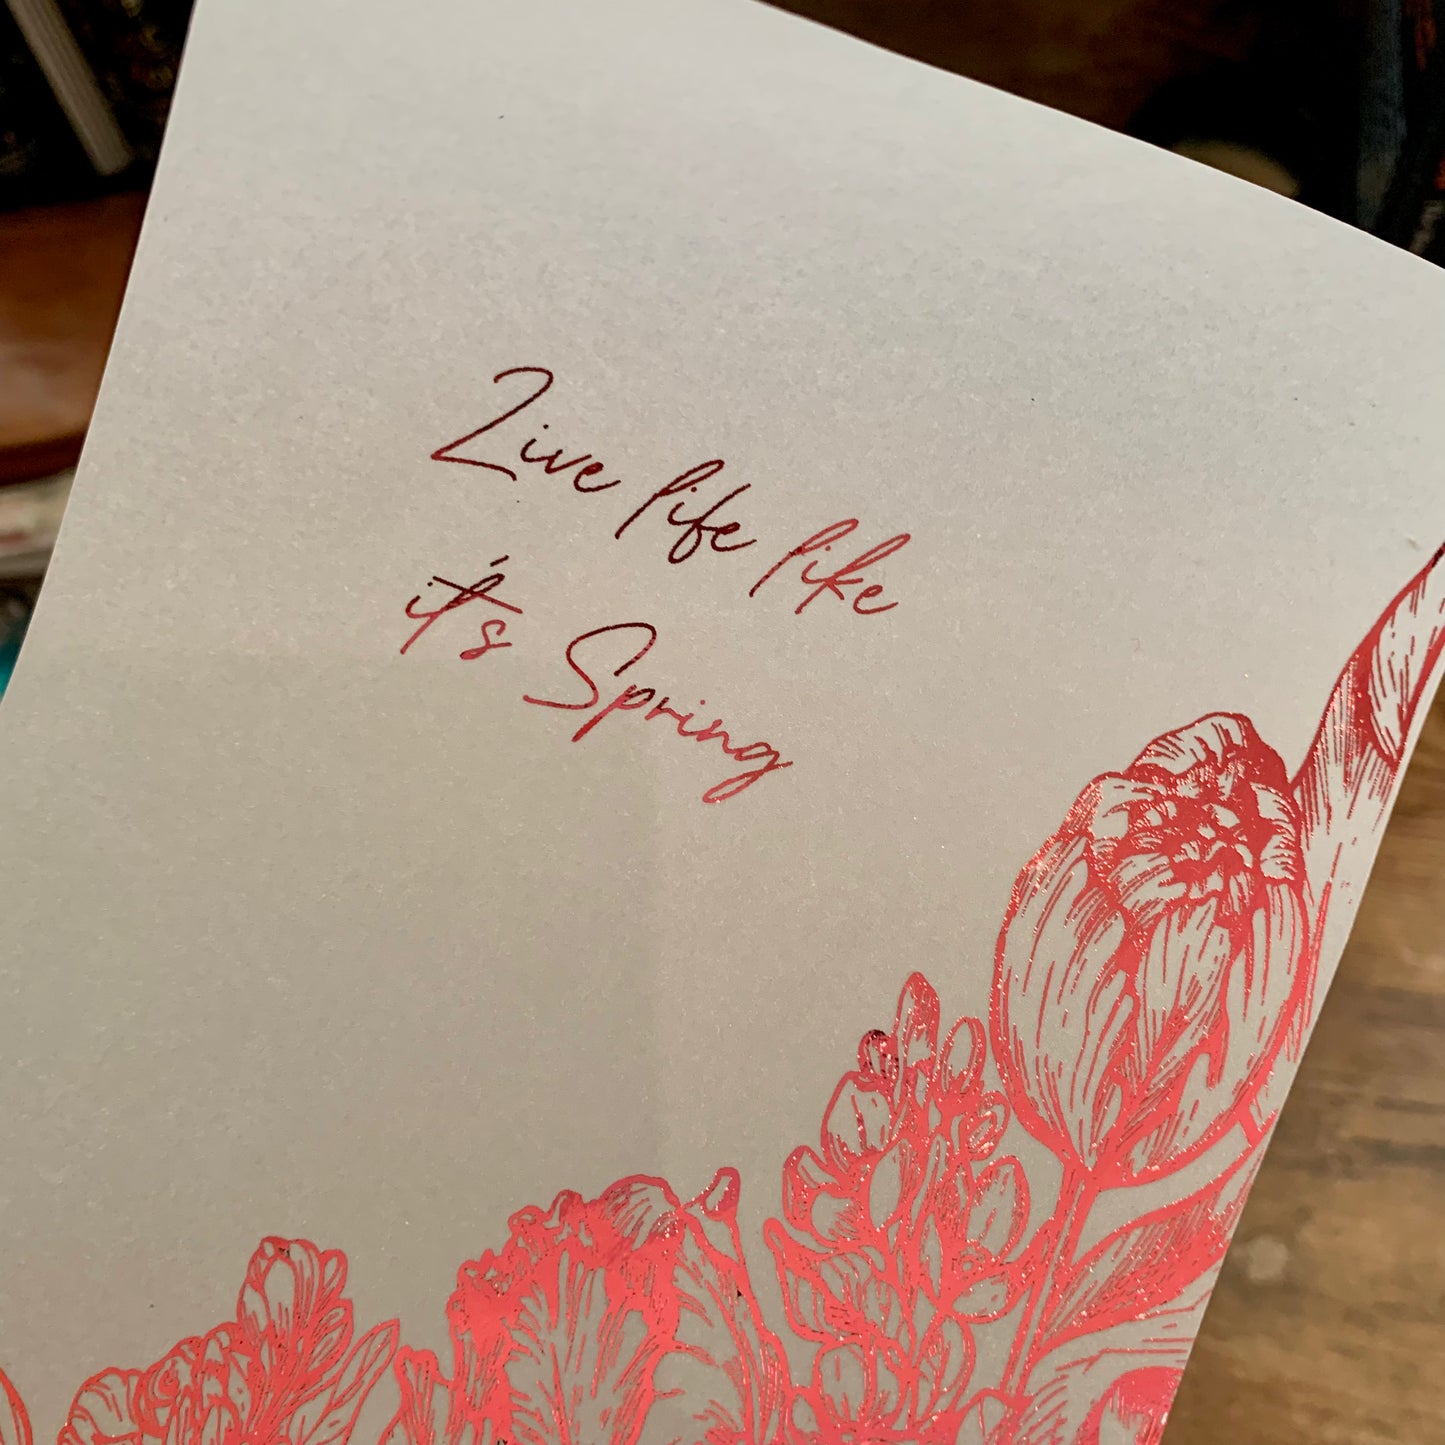 Live life like
it's Spring